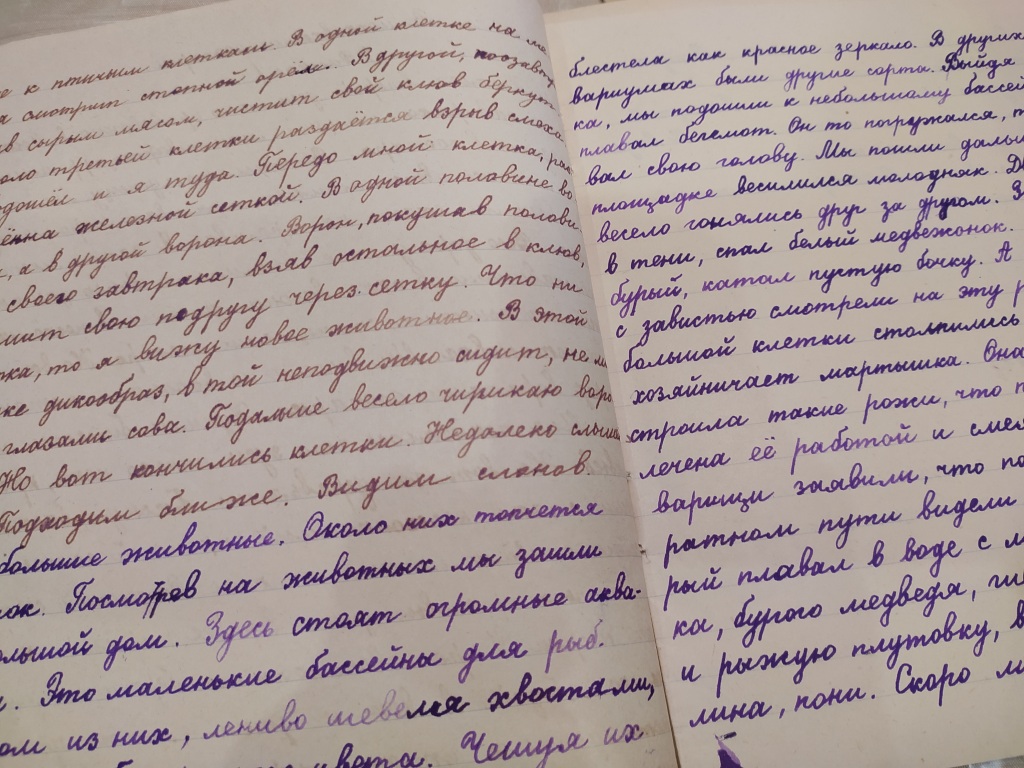 е к птичьим клеткам. В одной клетке на ме
а смотрит степной орёл. В другой, позавтр
ав сырым мясом, чистит свой клюв беркут
оло третьей клетки раздаётся взрыв смеха.
дошёл и я туда. Передо мной клетка, разг
ённа железной сеткой. В одной половине во
, а в другой ворона. Ворон, покушав полови
своего завтрака, взяв остальное в клюв,
мит свою подругу через сетку. Что ни
тка, то я вижу новое животное. В этой
ке дикообраз, в той неподвижно сидит, не ми
глазами сова. Подальше весело чирикаю воро
Но вот кончились клетки. Недалеко слыш
Подходим ближе. Видим слонов.
большие животные. Около них топчется
нок. Посмотрев на животных мы зашли
ольшой дом. Здесь стоят огромные аква-
и. Это маленькие бассейны для рыб.
ом из них, лениво шевеля хвостами,
цвета. Чешуя их
блестела как красное зеркало. В других
вариумах были другие сорта. Выйдя
ка, мы подошли к небольшому бассей
плавал бегемот. Он то погружался, т
вал свою голову. Мы пошли даль
площадке веселился молодняк. Д
весело гонялись друг за другом. З
в тени, спал белый медвежонок.
бурый, катал пустую бочку. А
с завистью смотрели на эту р
большой клетки столпились
хозяйничает мартышка. Она
строила такие рожи, что п
лечена её работой и смея
варищи заявили, что по
ратном пути видели
рый плавал в воде с м
ка, бурого медведя, ше
и рыжую плутовку, в
лина, пони. Скоро м